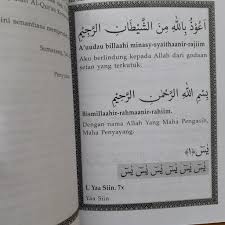 n Al-Qur'an
ini senantiasa mengena
Semarang,
Penyu
اَعُوْذُ بِاللهِ مِنَ الشَّيْطَانِ الرَّجِيْمِ
A'uudzu billaahi minasy-syaithaanir-rajiim
Aku berlindung kepada Allah dari godaan
setan yang terkutuk.
بِسْمِ اللهِ الرَّحْمٰنِ الرَّحِيْمِ
Bismillaahir-rahmaanir-rahiim.
Dengan nama Allah Yang Maha Pengasih,
Maha Penyayang.
يٰسٓ ﴿١﴾
يٰسٓ يٰسٓ يٰسٓ يٰسٓ يٰسٓ يٰسٓ
1. Yaa Siin. 7x
Yaa Siin